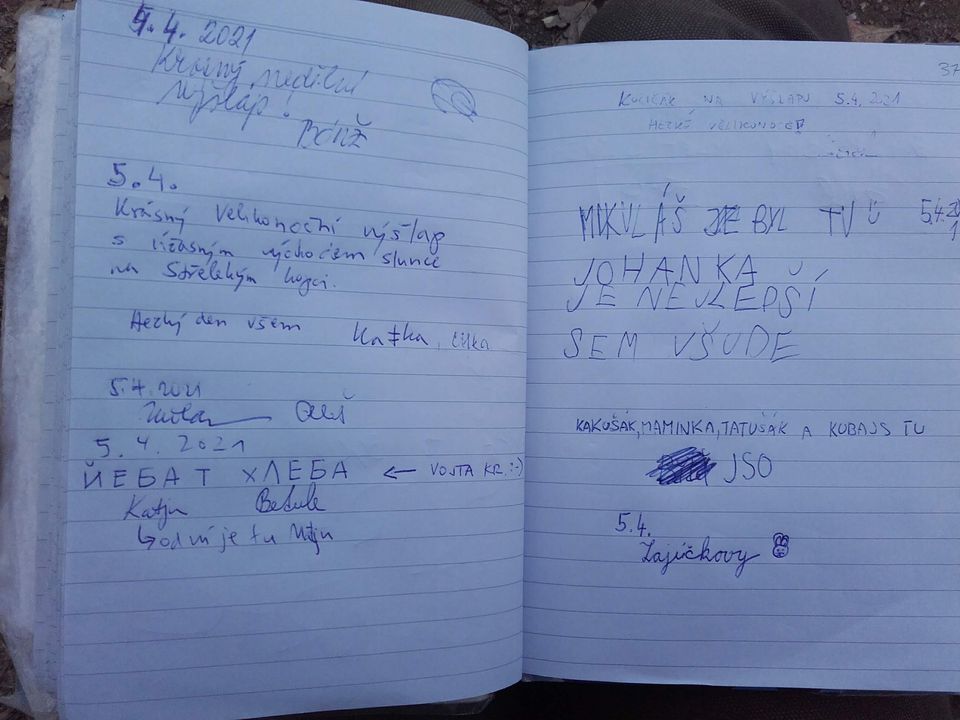 4.4. 2021
Krásný nedělní
výšlap!
5.4.
Krásný Velikonoční výšlap
s úžasným východem slunce
na Střeleckým kopci.
Hezký den všem Kačka,
5.4.2021
Aleš
5. 4. 2021
ЙЕБАТ ХЛЕБА ← VOJTA KR. :-)
37
KULIČÁK NA VÝŠLAPU 5.4.2021
HEZKÉ VELIKONOCE
MIKULÁŠ BYL TU 5.4.21
JOHANKA
JE NEJLEPŠÍ
SEM VŠUDE
KAKUŠÁK, MAMINKA, TATUŠÁK A KUBAJS TU
JSO
5.4.
Zajíčkovy